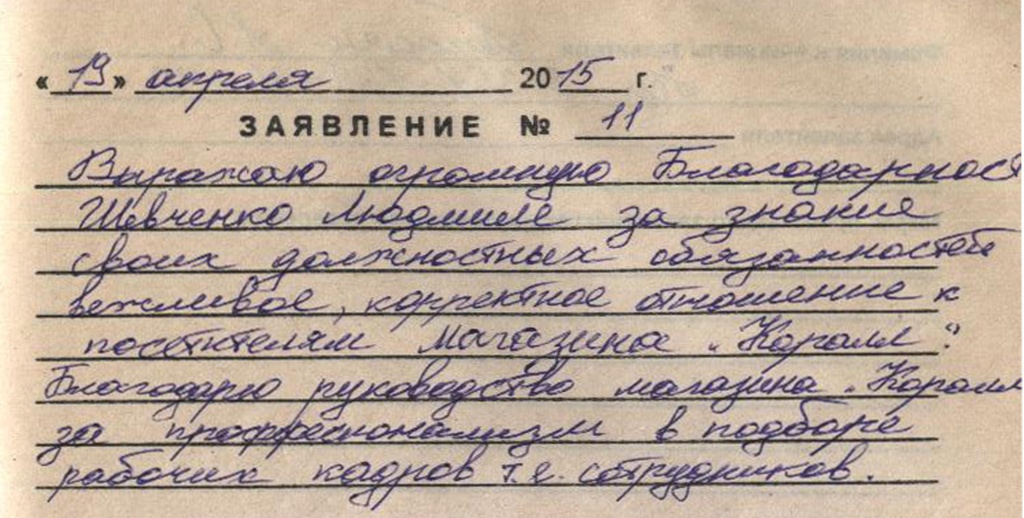 « 19 » апреля 2015 г.
ЗАЯВЛЕНИЕ № 11
Выражаю огромную Благодарност
Шевченко Людмиле за знание
своих должностных обязанностей
вежливое, корректное отношение к
посетителям магазина „Коралл".
Благодарю руководство магазина „Коралл
за профессионализм в подборе
рабочих кадров т.е. сотрудников.